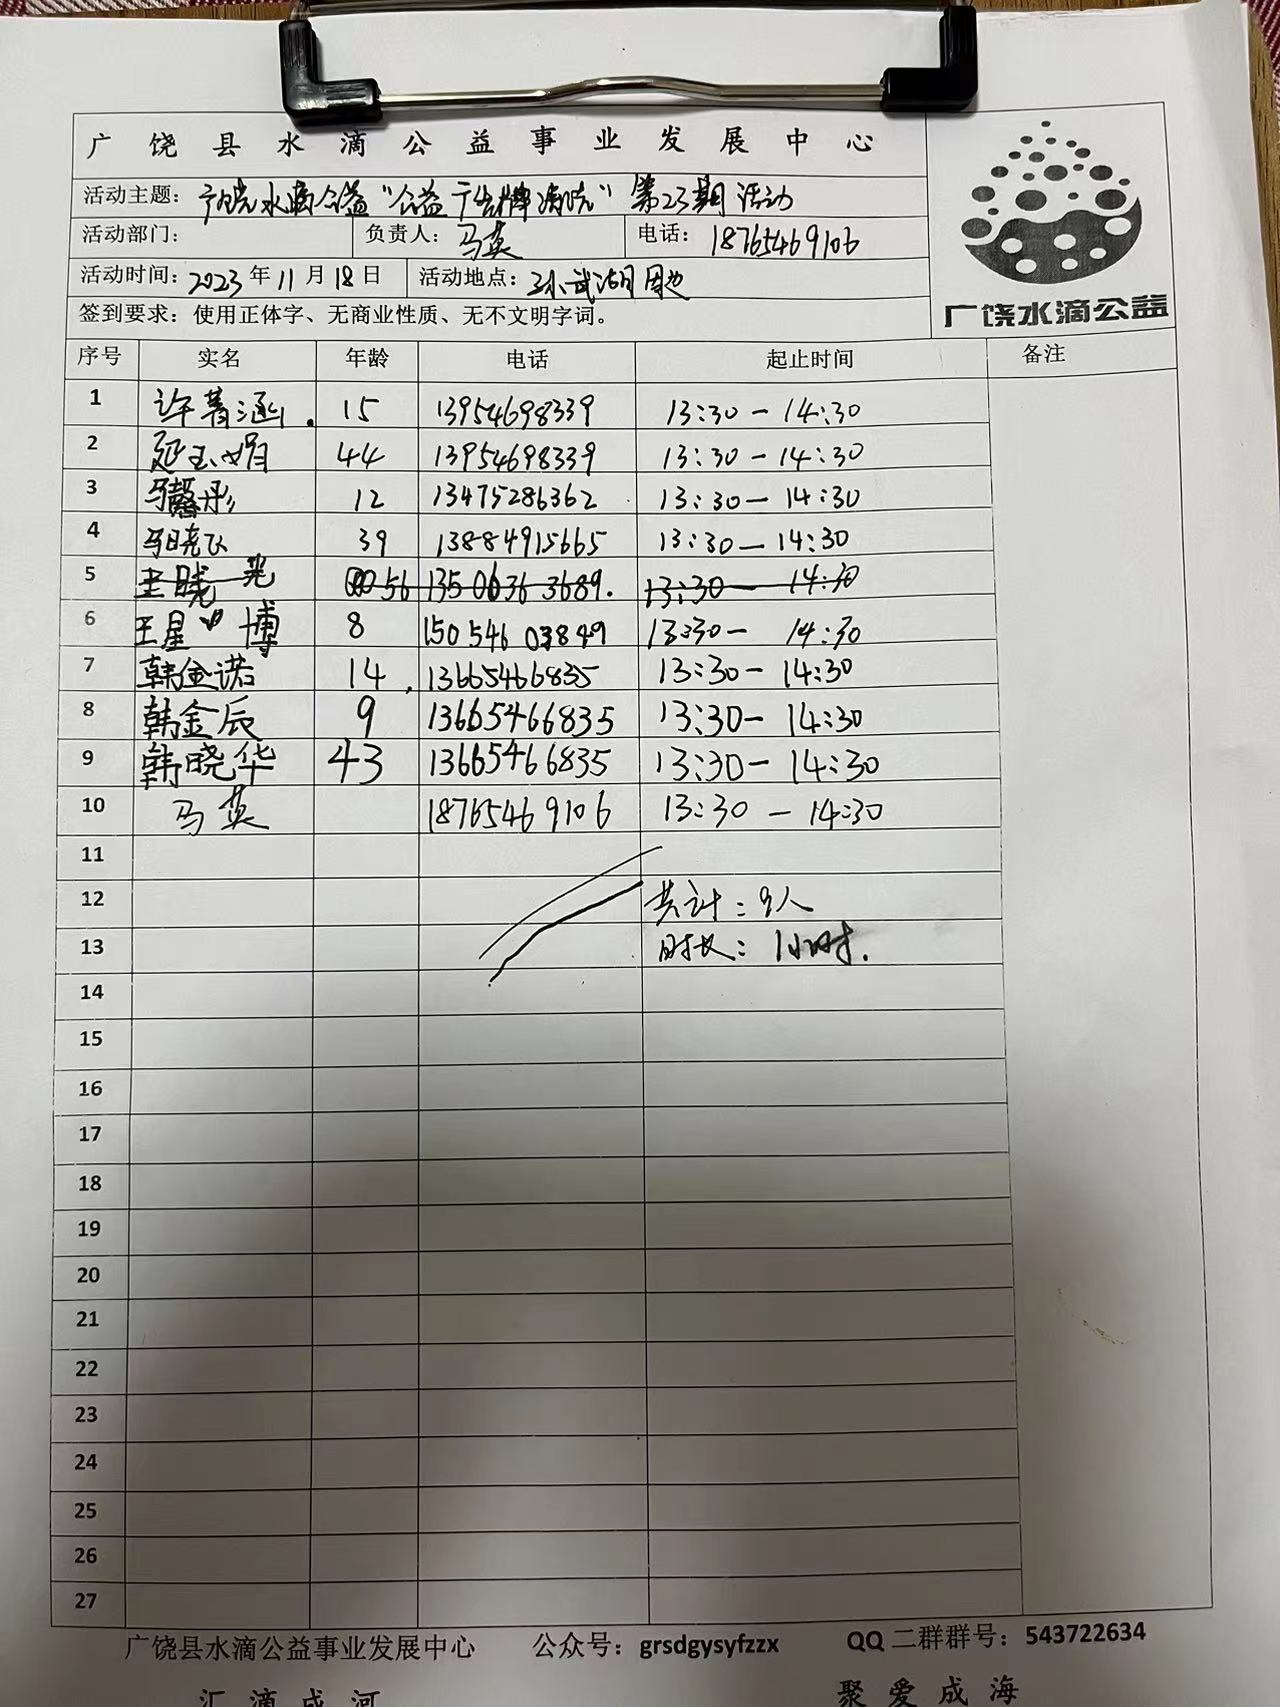 广饶县水滴公益事业发展中心
活动主题：广饶水滴公益"公益广告牌清洗"第23期活动
活动部门： 负责人：马英 电话：18765469106
活动时间：2023年11月18日 活动地点：孙武湖周边
签到要求：使用正体字、无商业性质、无不文明字词。
广饶水滴公益
序号 实名 年龄 电话 起止时间 备注
1 许菁涵. 15 13954698339 13:30-14:30
2 延玉娟 44 13954698339 13:30-14:30
3 马馨彤 12 13475286362 13:30-14:30
4 马晓飞 39 13884915665 13:30-14:30
5 王晓光 56 13506363689. 13:30-14:30
6 王星博 8 15054603849 13:30-14:30
7 韩金诺 14 13665466835 13:30-14:30
8 韩金辰 9 13665466835 13:30-14:30
9 韩晓华 43 13665466835 13:30-14:30
10 马英 18765469106 13:30-14:30
11
12 共计：9人
13 时长：1小时.
14
15
16
17
18
19
20
21
22
23
24
25
26
27
广饶县水滴公益事业发展中心 公众号：grsdgysyfzzx QQ二群群号：543722634
汇滴成河 聚爱成海